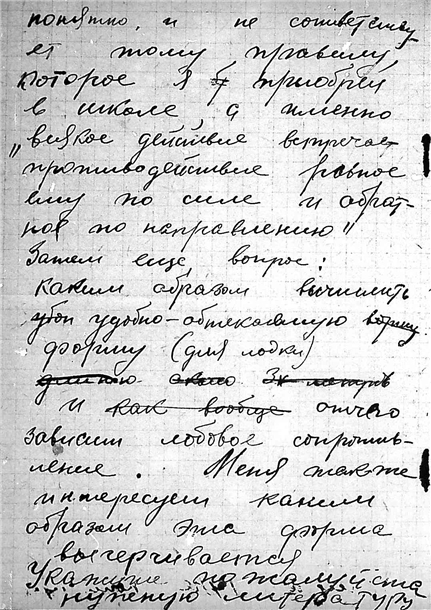 понятно, и не соответству
ет тому правилу,
которое я приобрёл
в школе, а именно
"всякое действие встречает
противодействие равное
ему по силе и обрат-
ное по направлению"
Затем еще, вопрос:
каким образом вычислить
удобно-обтекаемую
форму (для лодки)
и как вообще отчего
зависит лобовое сопротив-
ление. Меня также
интересует каким
образом эта форма
вычерчивается
Укажите пожалуйста
нужную литературу